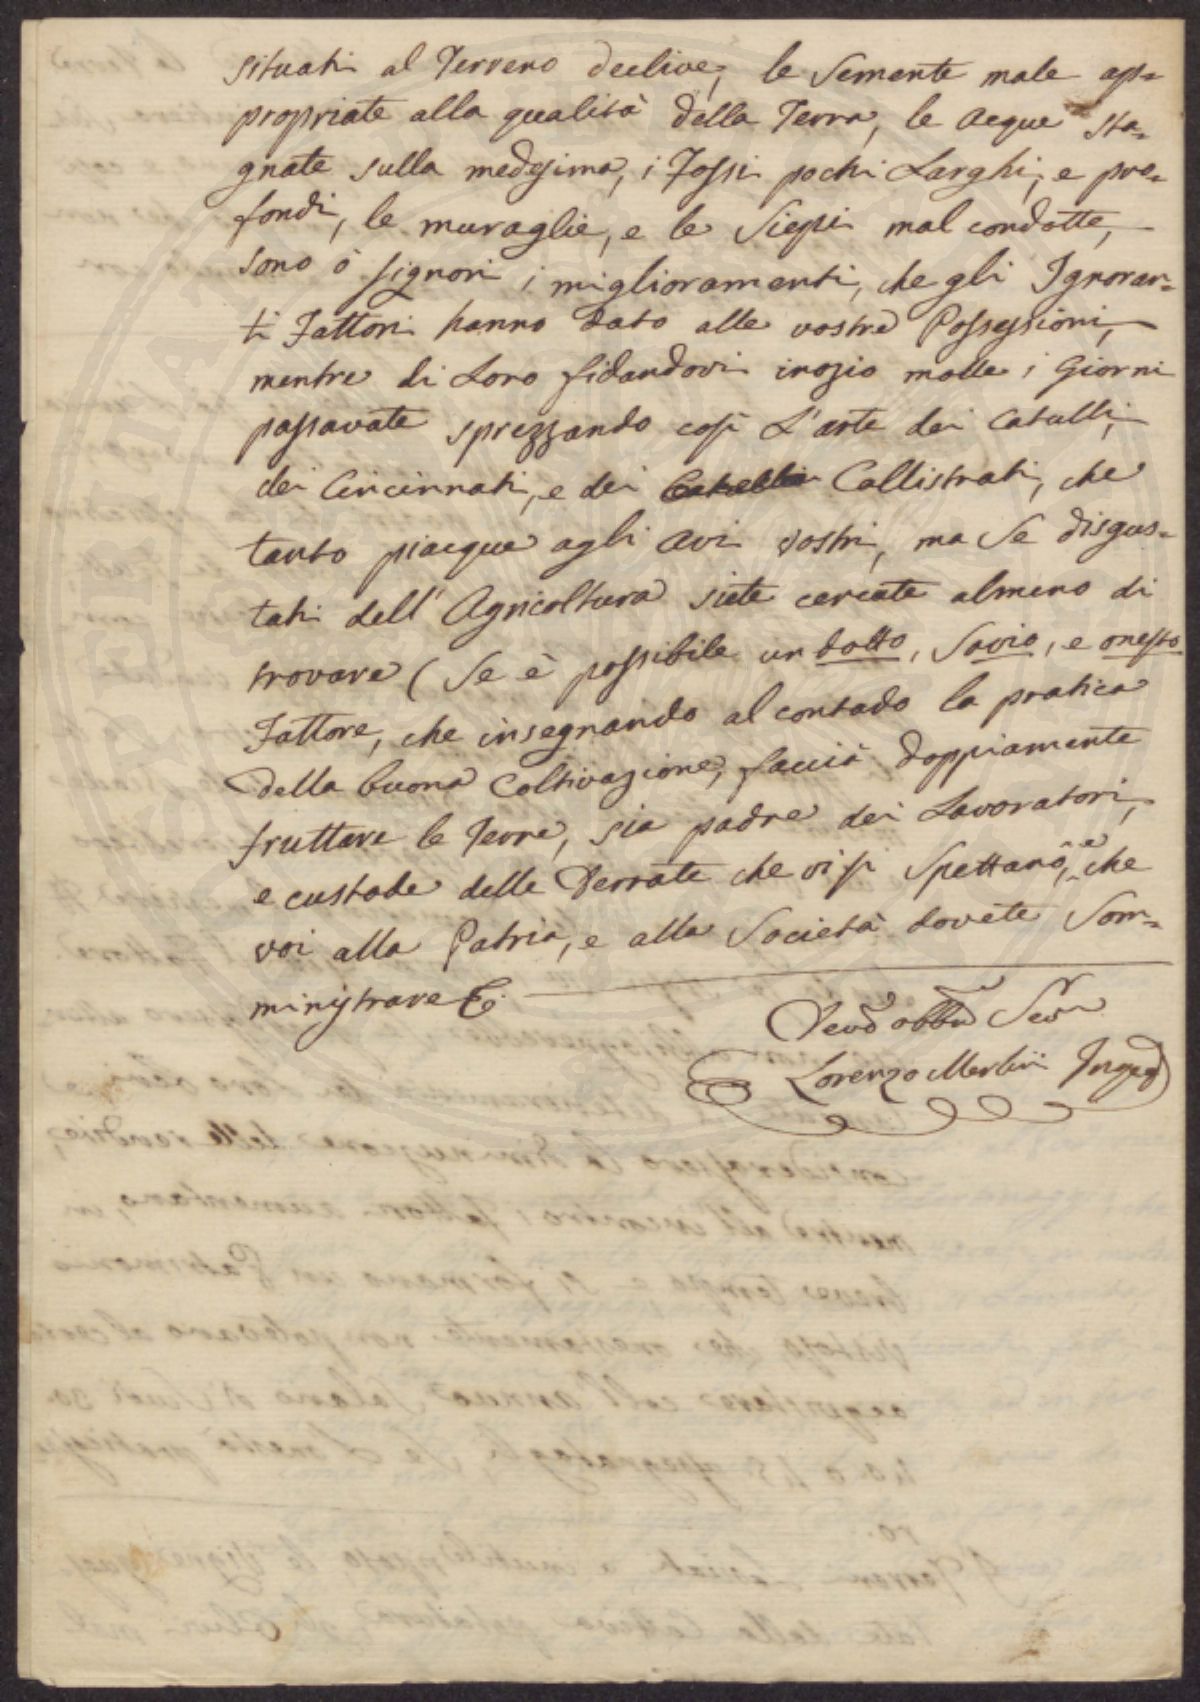 situati al Terreno declive, le Semente male ap=
propriate alla qualità della Terra, le Acque sta=
gnate sulla medesima, i Fossi pochi Larghi, e pro=
fondi, le muraglie, e le Siepi mal condotte,
sono ò signori i miglioramenti, che gli Ignoran=
ti Fattori hanno dato alle vostre Possessioni,
mentre di Loro fidandovi inozio molle i Giorni
passavate sprezzando così L'arte dei Catulli,
dei Cincinnati, e dei Callistrati, che
tanto piacque agli Avi vostri, ma Se disgus=
tati dell' Agricoltura siete cercate almeno di
trovare (Se è possibile un dotto, Savio, e onesto
Fattore, che insegnando al contado la pratica
della buona Coltivazione, faccia doppiamente
fruttare le Terre, sia padre dei Lavoratori,
e custode delle Derrate che vi si Spettano, e che
voi alla Patria, e alla Società dovete Som=
ministrare &.
Lorenzo Merlini